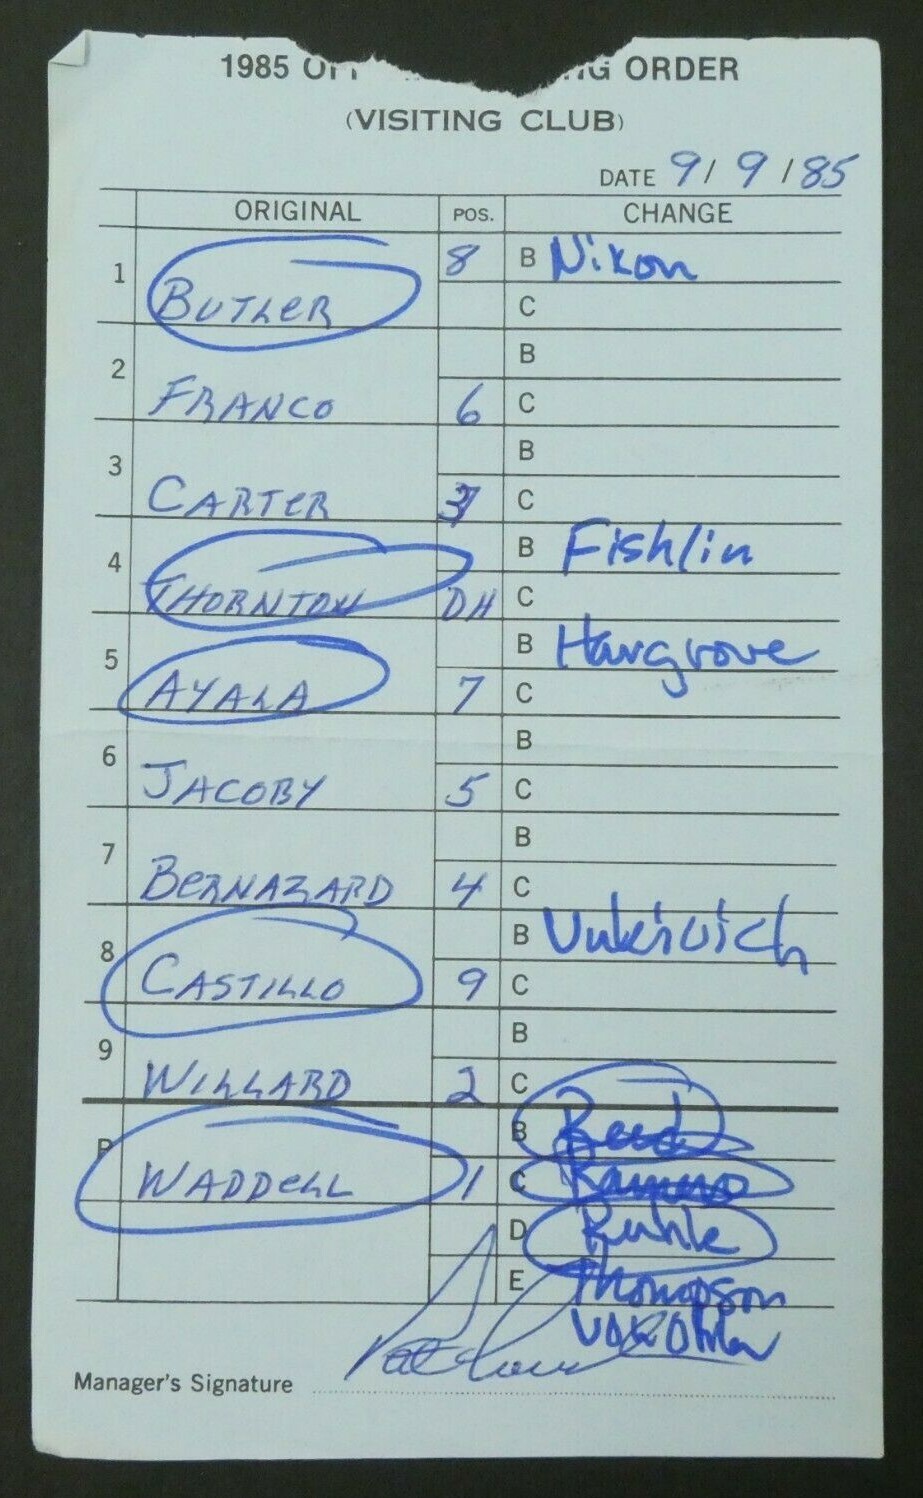 1985 OF NG ORDER
(VISITING CLUB)
DATE 9/9/85
ORIGINAL POS. CHANGE
1 BUTLER 8 B Nixon
C
2 FRANCO 6 B
C
3 CARTER B
C
4 THORNTON DH B Fishlin
C
5 AYALA 7 B Hargrove
C
6 JACOBY 5 B
C
7 BERNAZARD 4 B
C
8 CASTILLO 9 B Vukivich
C
9 WILLARD 2 B
C
P WADDELL 1 B Reed
C
D Ruhle
E Thompson
Manager's Signature